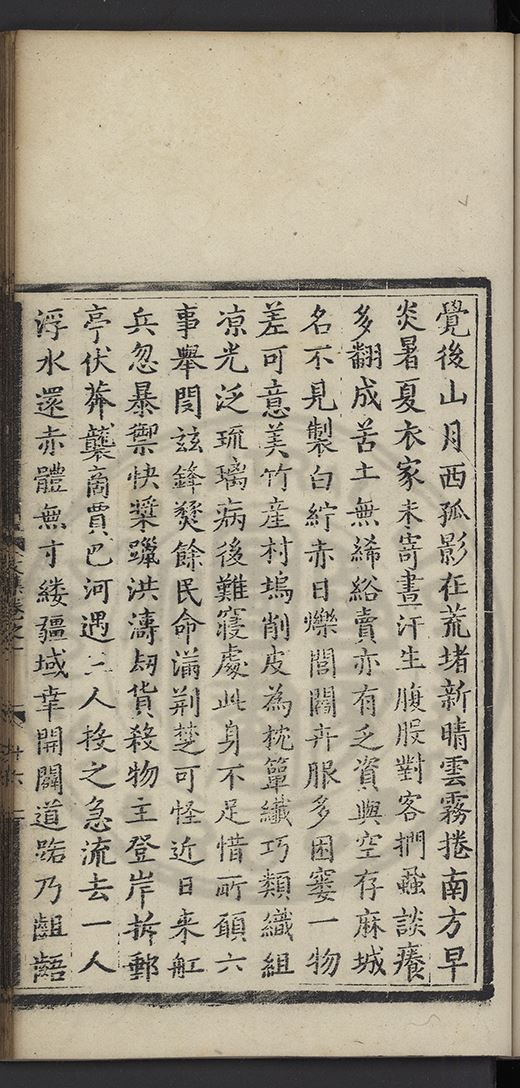 覺後山月西孤影在荒堵新晴雲霧捲南方早
炎暑夏衣家未寄晝汗生腹股對客捫蝨談癢
多翻成苦土無絺綌賣亦有乏資與空存麻城
名不見製白紵赤日爍閭閻卉服多困窶一物
差可意美竹産村塢削皮為枕簟纖巧類織組
凉光泛琉璃病後難寢處此身不足惜所願六
事舉閔茲鋒燹餘民命滿荆楚可怪近日來舡
兵忽暴禦快槳躐洪濤刧貨殺物主登岸拆郵
亭伏莽襲商賈巴河遇三人投之急流去一人
浮水還赤體無寸縷疆域幸開闢道路乃齟齬